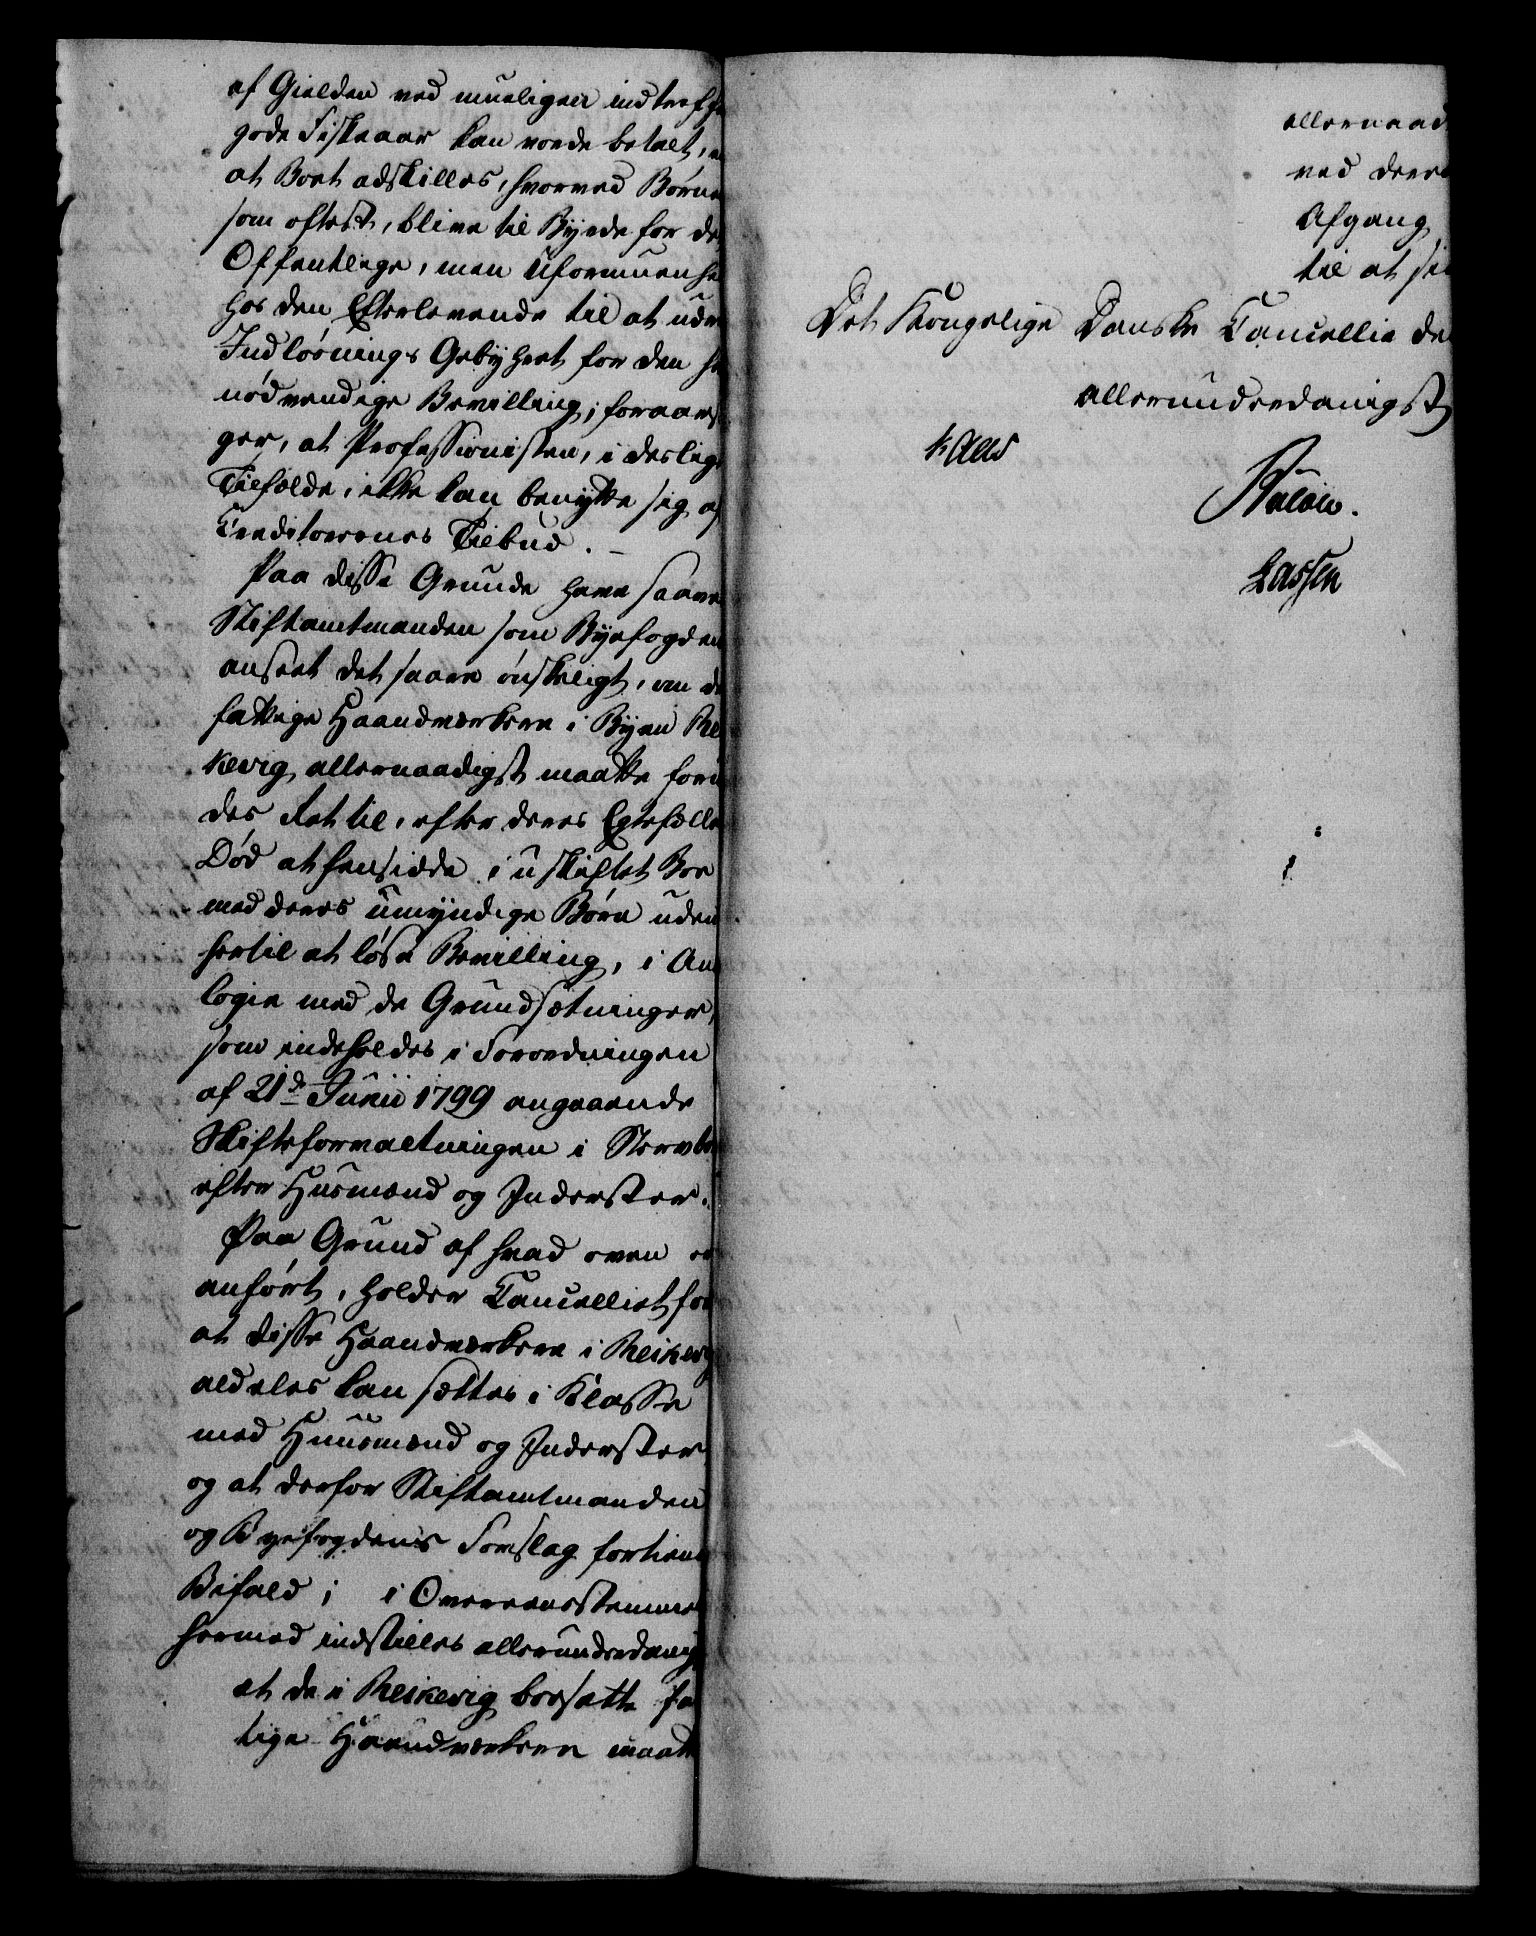 af Gielden ved mueligen indtreff
gode Fiskeaar kan vorde betalt,
at Boet adskilles, hvorved Børne
som oftest, blive til Byrde for de
Offentlige, men Uformuenhe
hos den Efterlevende til at udre
Indløsnings Gebyhret for den he
nødvendige Bevilling; foraars
ger, at Professionisten, i deslige
Tilfælde, ikke kan benytte sig af
Creditorernes Tilbud. –
Paa disse Grunde have saave
Stiftamtmanden som Byefogden
anseet det saare ønskeligt, om de
fattige Haandværkere i Byen Re
kevig allernaadigst maatte forun
des Ret til, efter deres Egtefælle
Død at hensidde i uskiftet Boe
med deres umyndige Børn uden
hertil at løse Bevilling, i Ana
logie med de Grundsætninger,
som indeholdes i Forordningen
af 21de Junii 1799 angaaende
Skifteforvaltningen i Stervbo
efter Husmænd og Inderster.
Paa Grund af hvad oven er
anført, holder Cancelliet for
at disse Haandværkere i Reikevig
aldeles kan sættes i Klasse
med Huusmænd og Inderster
og at derfor Stiftamtmanden
og Byefogdens Forslag fortiene
Bifald; i Overeensstemmel
hermed indstilles allerunderdanig
at de i Reikevig bosatte fat
tige Haandværkere maatte
allernaad
ved deres
Afgang
til at si
Det Kongelige Danske Cancellie de
allerunderdanigst
Kaas
Lassen